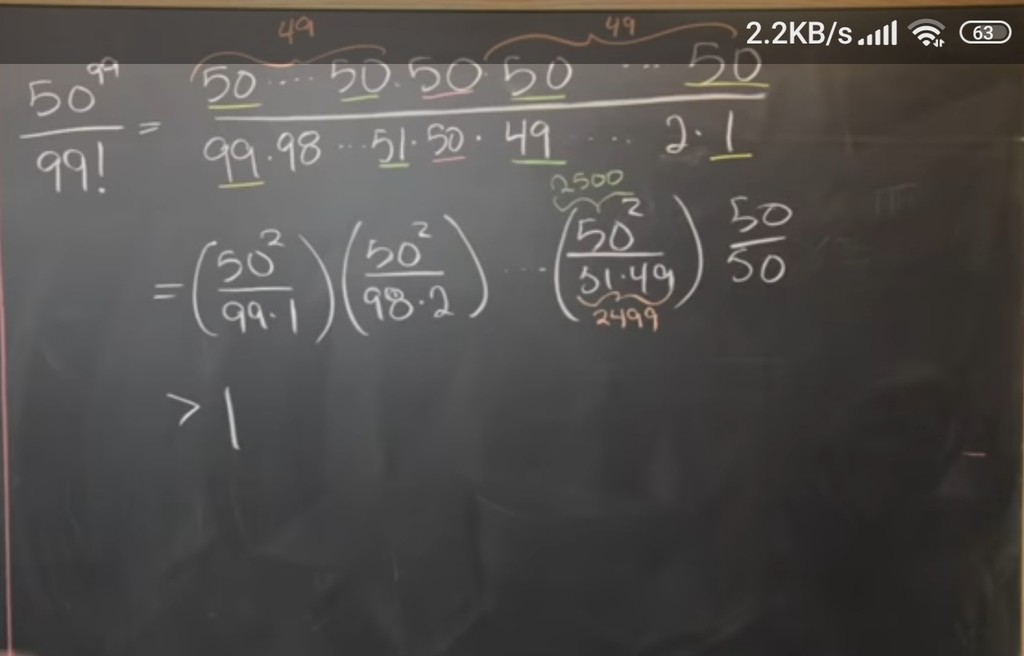 2.2KB/s 63
49 49
50^99 / 99! = 50 ···· 50 · 50 · 50 ··· 50 / 99 · 98 ··· 51 · 50 · 49 ···· 2 · 1
2500
= (50^2 / 99 · 1) (50^2 / 98 · 2) ···· (50^2 / 51 · 49) 50 / 50
2499
> 1